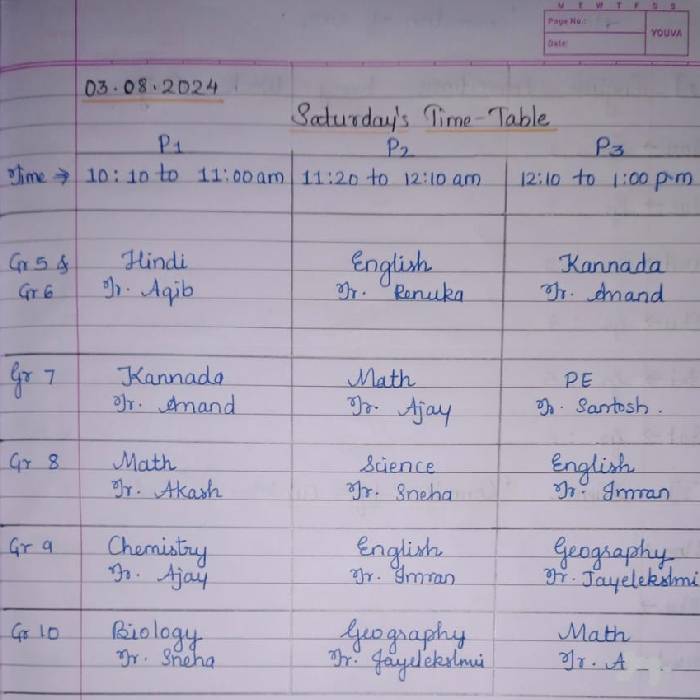 M T W T F S S
Page No.:
Date:
YOUVA
03.08.2024
Saturday's Time-Table
P1 P2 P3
Time → 10:10 to 11:00am 11:20 to 12:10 am 12:10 to 1:00 p.m
Gr 5 & Hindi English Kannada
Gr 6 Tr. Aqib Tr. Renuka Tr. Anand
Gr 7 Kannada Math PE
Tr. Anand Tr. Ajay Tr. Santosh.
Gr 8 Math Science English
Tr. Akash Tr. Sneha Tr. Imran
Gr 9 Chemistry English Geography
Tr. Ajay Tr. Imran Tr. Jayelekslmi
Gr 10 Biology Geography Math
Tr. Sneha Tr. Jayelekslmi Tr. A